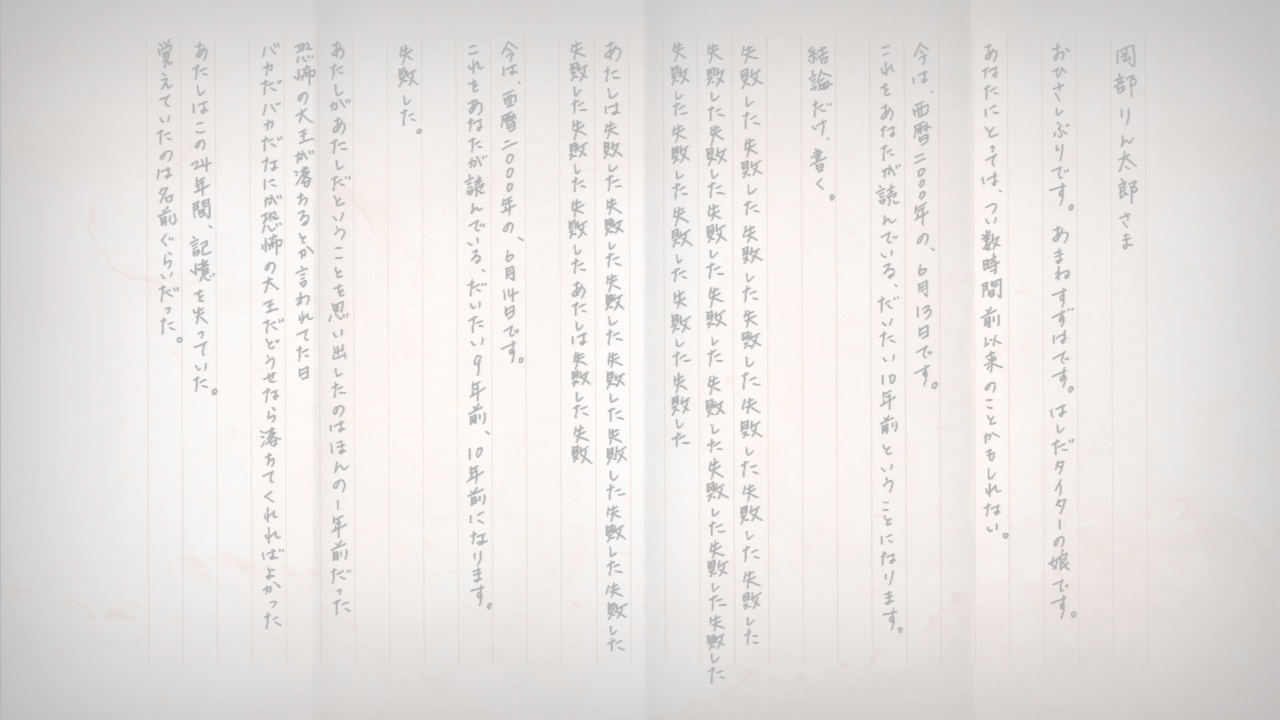 岡部りん太郎さま
おひさしぶりです。あまねすずはです。はしだタイターの娘です。
あなたにとっては、つい数時間前以来のことかもしれない。
今は、西暦二〇〇〇年の、6月13日です。
これをあなたが読んでいる、だいたい10年前ということになります。
結論だけ、書く。
失敗した失敗した失敗した失敗した失敗した失敗した失敗した
失敗した失敗した失敗した失敗した失敗した失敗した失敗した失敗した
失敗した失敗した失敗した失敗した失敗した
あたしは失敗した失敗した失敗した失敗した失敗した失敗した失敗した
失敗した失敗した失敗したあたしは失敗した失敗
今は、西暦二〇〇〇年の、6月14日です。
これをあなたが読んでいる、だいたい9年前、10年前になります。
失敗した。
あたしがあたしだということを思い出したのはほんの1年前だった
恐怖の大王が落ちるとか言われてた日
バカだバカだなにが恐怖の大王だどうせなら落ちてくれればよかった
あたしはこの24年間、記憶を失っていた。
覚えていたのは名前ぐらいだった。